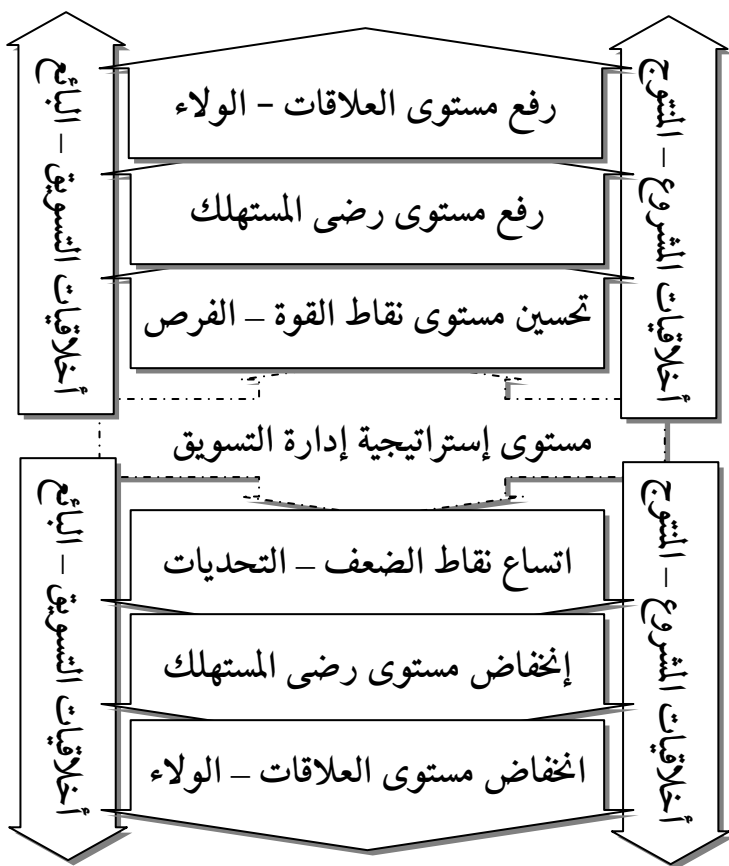 أخلاقيات المشروع – المنتوج
رفع مستوى العلاقات – الولاء
رفع مستوى رضى المستهلك
تحسين مستوى نقاط القوة – الفرص
أخلاقيات التسويق – البائع
مستوى إستراتيجية إدارة التسويق
أخلاقيات المشروع – المنتوج
اتساع نقاط الضعف – التحديات
إنخفاض مستوى رضى المستهلك
انخفاض مستوى العلاقات – الولاء
أخلاقيات التسويق – البائع